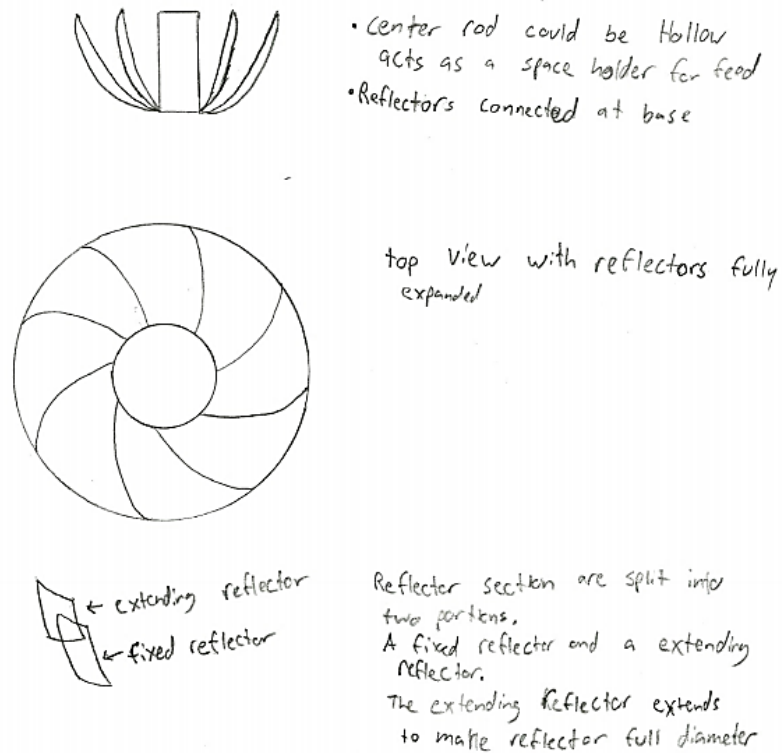 • Center rod could be Hollow
acts as a space holder for feed
• Reflectors connected at base
top view with reflectors fully
expanded
← extending reflector
← fixed reflector
Reflector section are split into
two portions.
A fixed reflector and a extending
reflector.
The extending Reflector extends
to make reflector full diameter